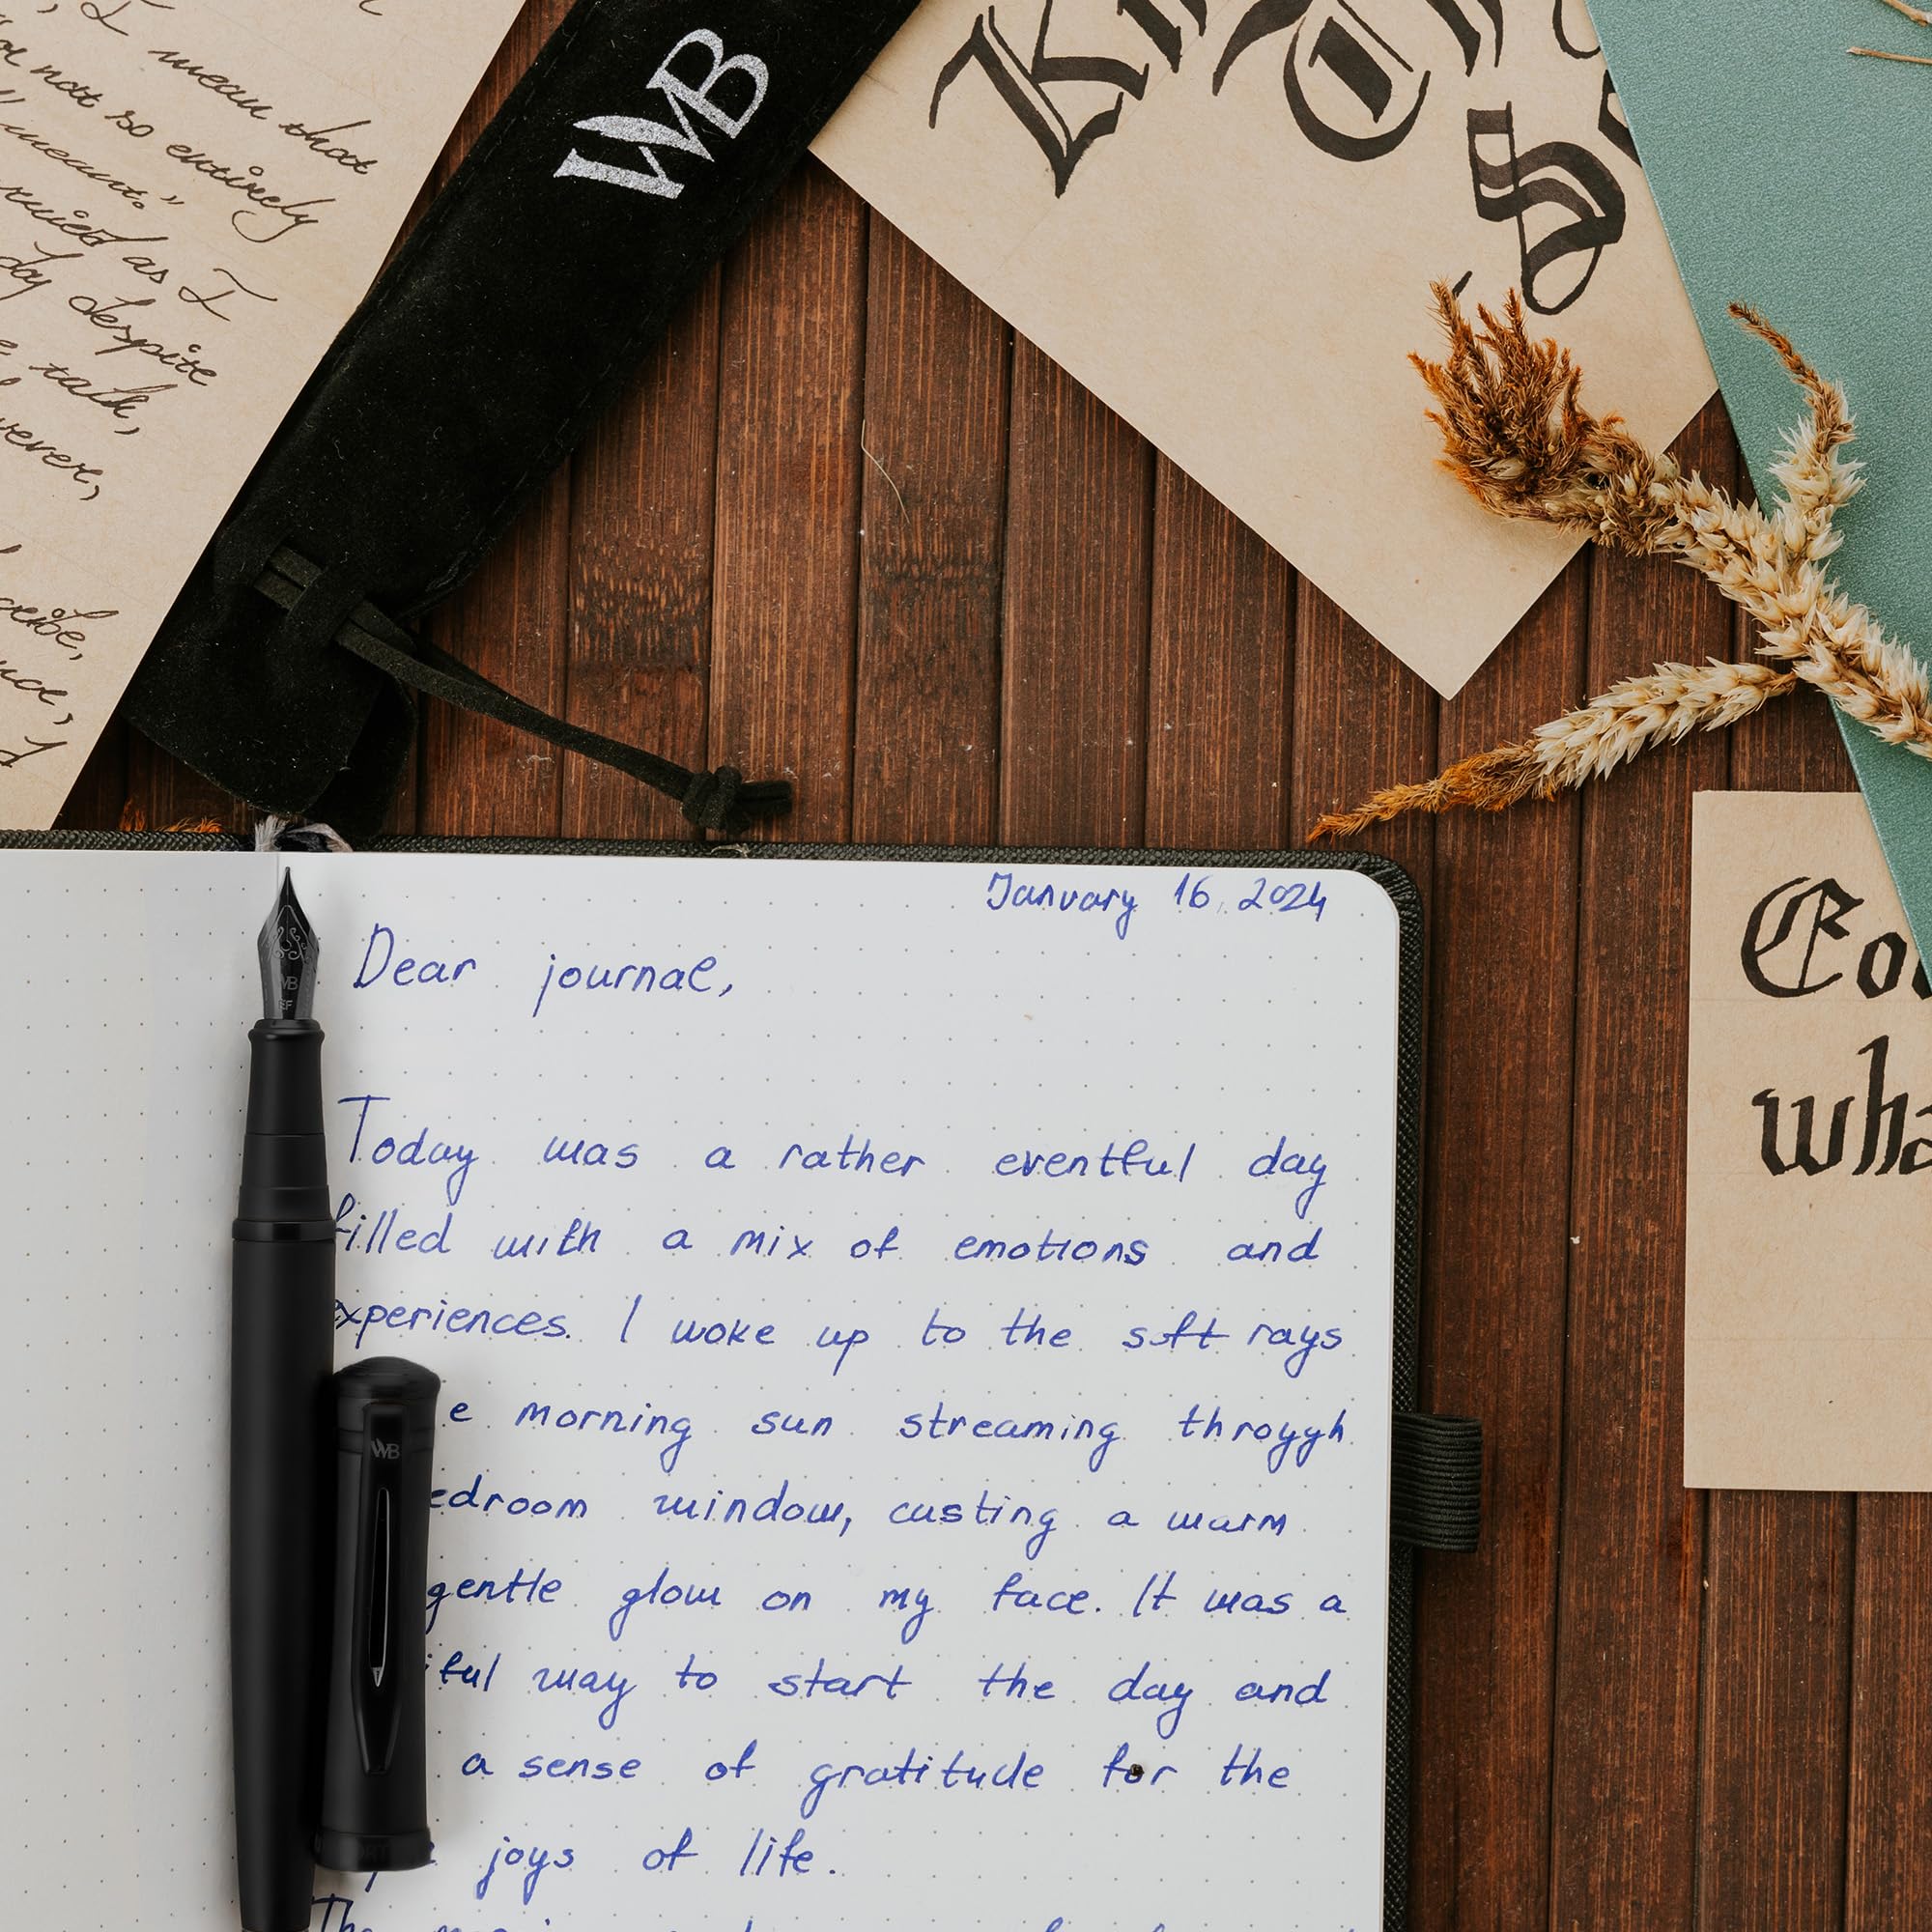 I mean that
not so entirely
meant."
as I
day despite
talk,
WB
January 16, 2024
Dear journal,
Today was a rather eventful day
filled with a mix of emotions and
experiences. I woke up to the soft rays
e morning sun streaming throygh
edroom window, casting a warm
gentle glow on my face. It was a
iful way to start the day and
a sense of gratitude for the
joys of life.
The
WB
EF
WB
wha